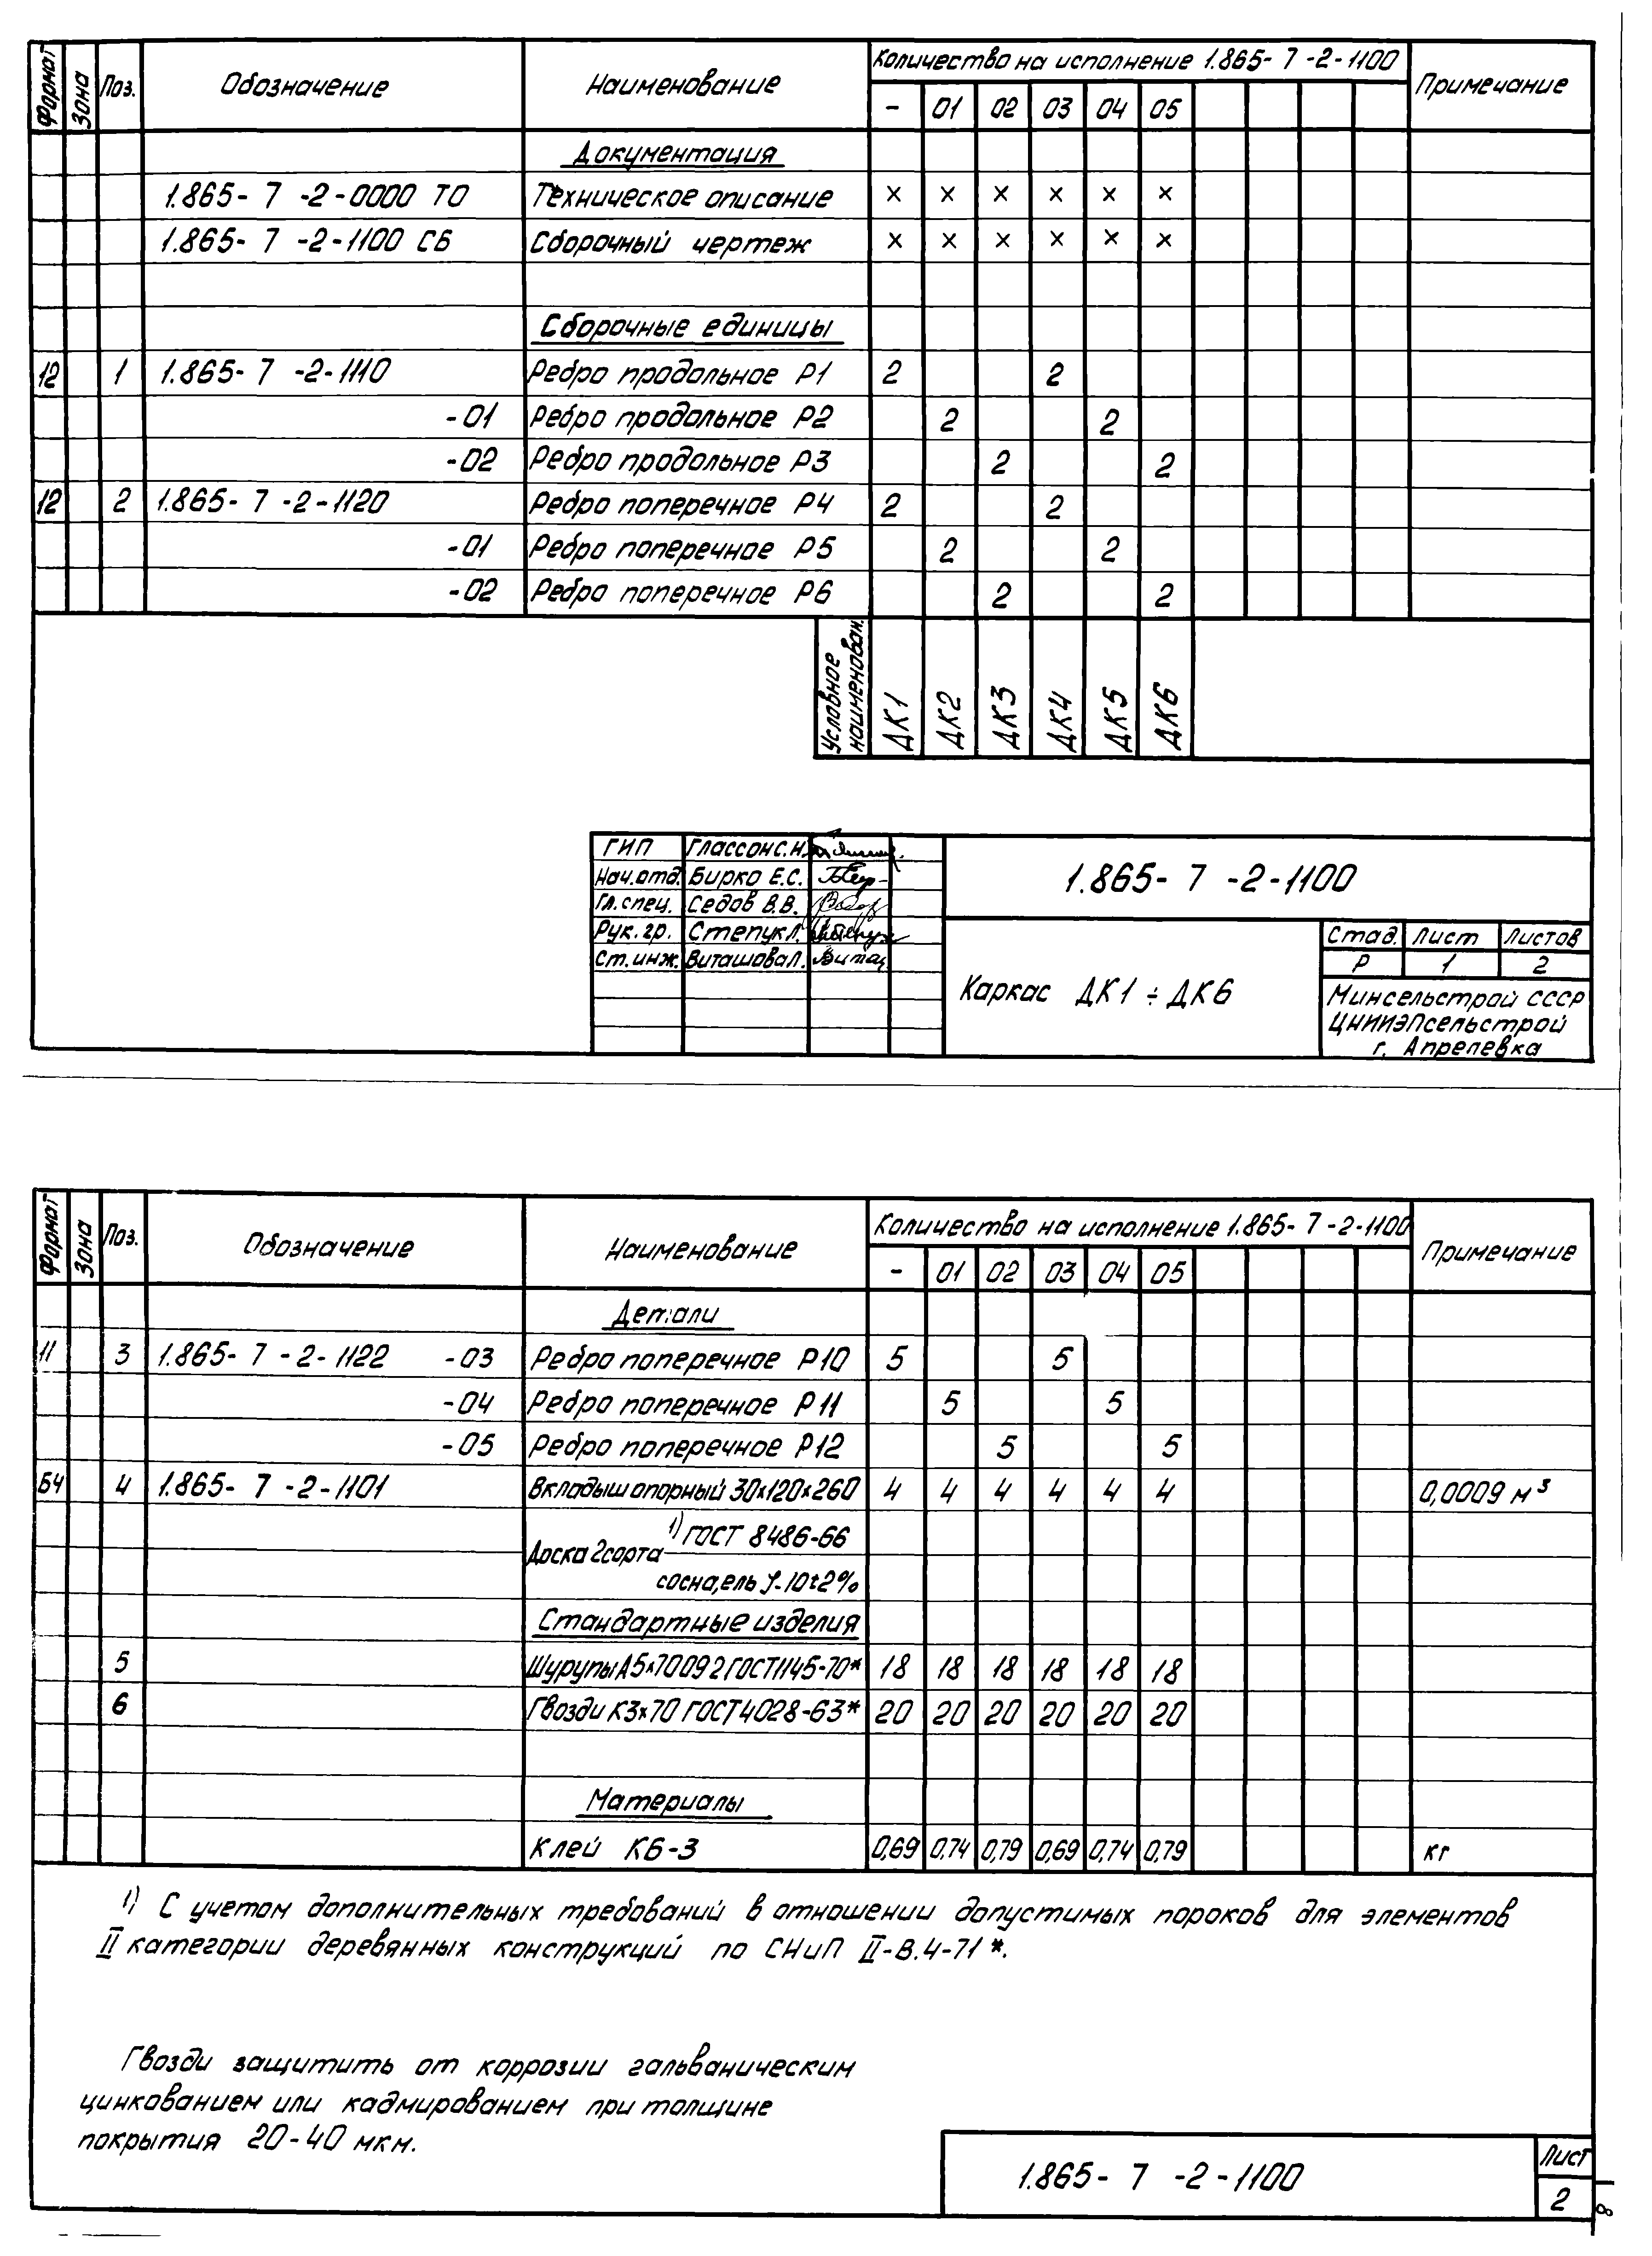 Формат Зона Поз. Обозначение Наименование Количество на исполнение 1.865- 7 -2-1100 Примечание
- 01 02 03 04 05
Документация
1.865- 7 -2-0000 ТО Техническое описание × × × × × ×
1.865- 7 -2-1100 СБ Сборочный чертеж × × × × × ×
Сборочные единицы
12 1 1.865- 7 -2-1110 Ребро продольное Р1 2 2
-01 Ребро продольное Р2 2 2
-02 Ребро продольное Р3 2 2
12 2 1.865- 7 -2-1120 Ребро поперечное Р4 2 2
-01 Ребро поперечное Р5 2 2
-02 Ребро поперечное Р6 2 2
Условное наименован. ДК1 ДК2 ДК3 ДК4 ДК5 ДК6
ГИП Глассонс.н.
Нач.отд. Бирко Е.С.
Гл.спец. Седов В.В.
Рук.гр. Степук Л.
Ст.инж. Виташова Л.
1.865- 7 -2-1100
Каркас ДК1 ÷ ДК6
Стад. Лист Листов
Р 1 2
Минсельстрой СССР
ЦНИИЭПсельстрой
г. Апрелевка
Формат Зона Поз. Обозначение Наименование Количество на исполнение 1.865- 7 -2-1100 Примечание
- 01 02 03 04 05
Детали
11 3 1.865- 7 -2-1122 -03 Ребро поперечное Р10 5 5
-04 Ребро поперечное Р11 5 5
-05 Ребро поперечное Р12 5 5
БЧ 4 1.865- 7 -2-1101 Вкладыш опорный 30×120×260 4 4 4 4 4 4 0,0009 м³
Доска 2сорта 1) ГОСТ 8486-66
сосна,ель φ-10±2%
Стандартные изделия
5 Шурупы А5×70092 ГОСТ1145-70* 18 18 18 18 18 18
6 Гвозди К3×70 ГОСТ4028-63* 20 20 20 20 20 20
Материалы
Клей КБ-3 0,69 0,74 0,79 0,69 0,74 0,79 кг
1) С учетом дополнительных требований в отношении допустимых пороков для элементов
II категории деревянных конструкций по СНиП II-В.4-71*.
Гвозди защитить от коррозии гальваническим
цинкованием или кадмированием при толщине
покрытия 20-40 мкм.
1.865- 7 -2-1100
Лист
2
8